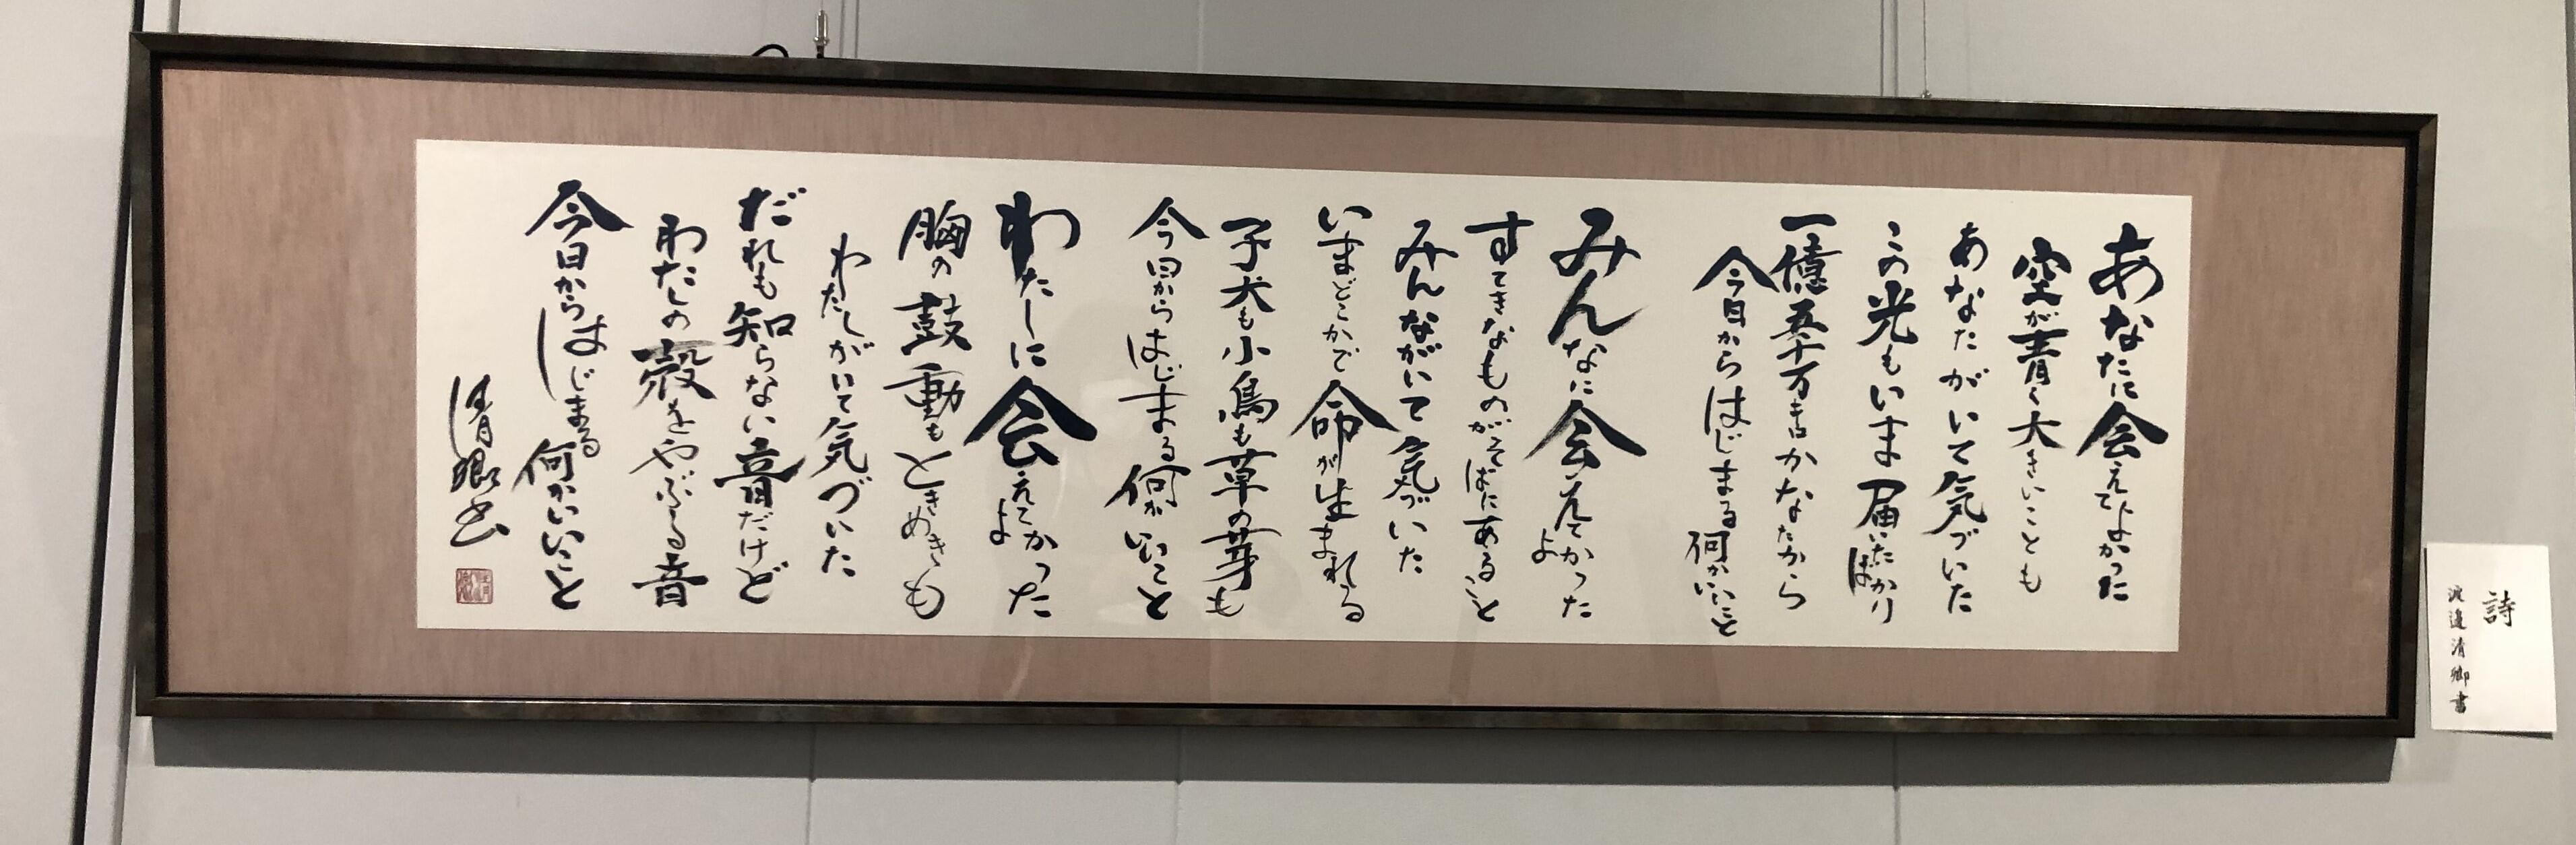 あなたに会えてよかった
空が青く大きいことも
あなたがいて気づいた
この光もいま届いたばかり
一億五千万キロかなたから
今日からはじまる何かいいこと
みんなに会えてよかった
すてきなものがそばにあること
みんながいて気づいた
いまどこかで命が生まれる
子犬も小鳥も草の芽も
今日からはじまる何かいいこと
わたしに会えてよかった
胸の鼓動もときめきも
わたしがいて気づいた
だれも知らない音だけど
わたしの殻をやぶる音
今日からはじまる何かいいこと
清卿書
詩
渡邉清卿書